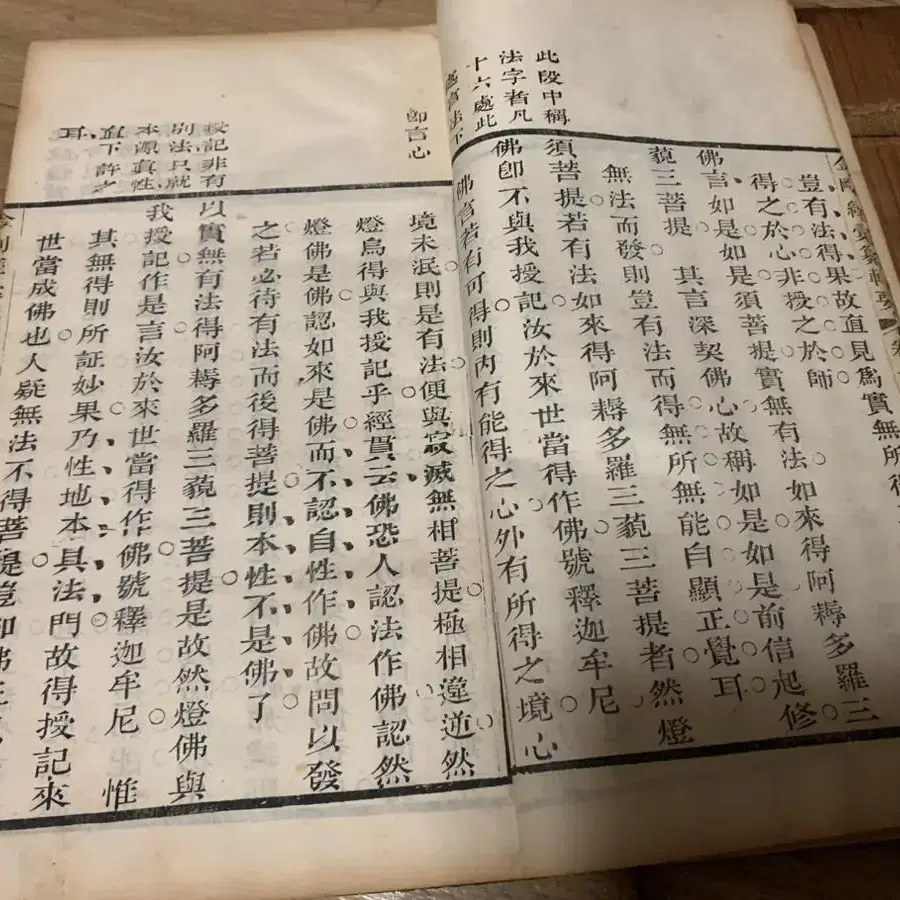 此段中稱
法字者凡
十六處此
豈有法得果故直見爲實無所得
得之於心非授之於師
佛言如是如是須菩提實無有法如來得阿耨多羅三
藐三菩提 其言深契佛心故稱如是如是前信起修
無法而發則豈有法而得無所無能自顯正覺耳
須菩提若有法如來得阿耨多羅三藐三菩提者然燈
佛卽不與我授記汝於來世當得作佛號釋迦牟尼
佛言若有可得則內有能得之心外有所得之境心
卽言心
授記非有
別法只就
本源真性
直下許之
耳
境未泯則是有法便與寂滅無相菩提極相違逆然
燈鳥得與我授記乎經貫云佛恐人認法作佛認然
燈佛是佛認如來是佛而不認自性作佛故問以發
之若必待有法而後得菩提則本性不是佛了
以實無有法得阿耨多羅三藐三菩提是故然燈佛與
我授記作是言汝於來世當得作佛號釋迦牟尼 惟
其無得則所証妙果乃性地本具法門故得授記來
世當成佛也人疑無法不得菩提豈卽佛